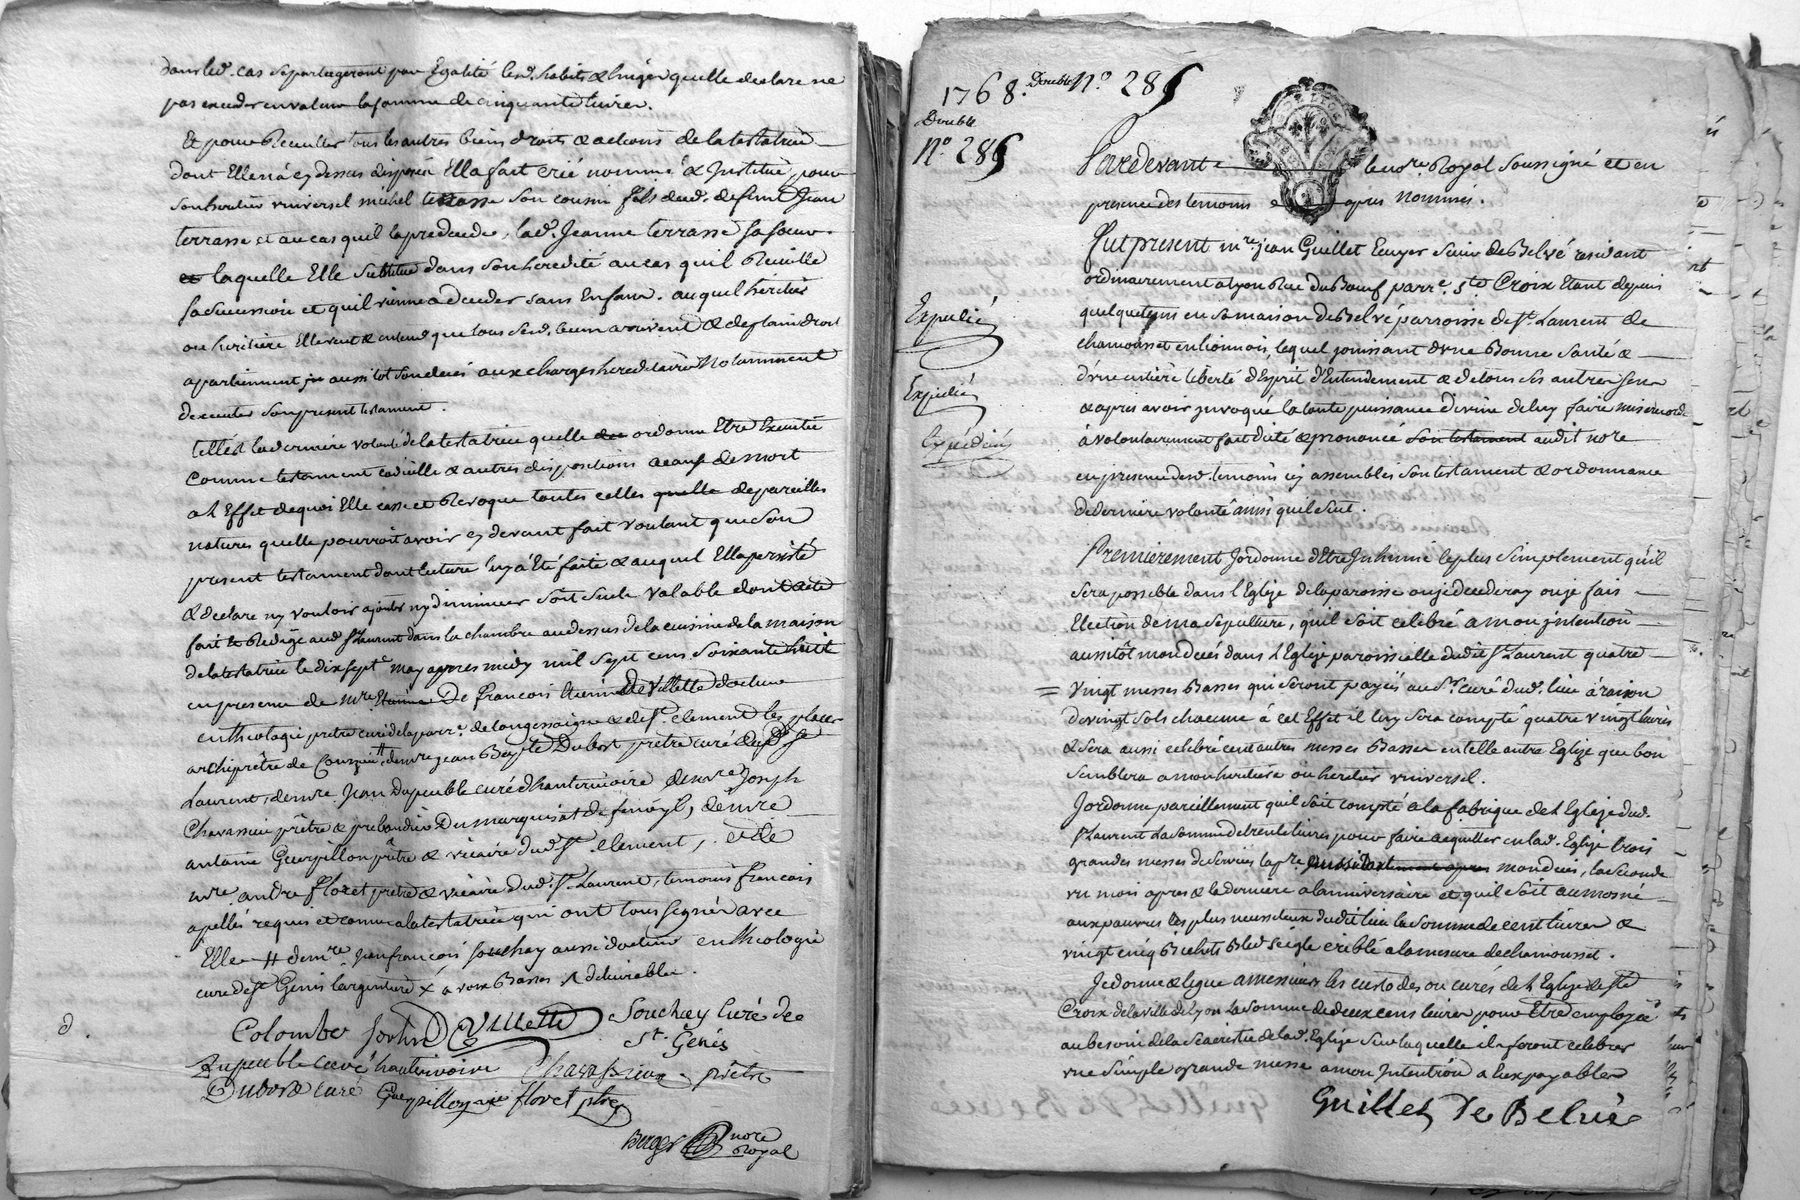 dans led. cas separtageront par Egalité lesd. habits & linges quelle declare ne
pas exceder en valeur la somme de cinquante livres.
Et pour Recuillir tous les autres biens droits & actions de la testatrice
dont Elle n'a cy dessus disposé Ella fait crié nommé & Institué pour
son heritier universel michel terrasse son cousin fils dud. defunt Jean
terrasse et au cas quil la predecede, lad. Jeanne terrasse sa soeur
et laquelle Elle substitue dans son heredité au cas qu'il Recuille
sa succession et quil vienne a deceder sans Enfans. auquel heritier
ou heritiere Elle veut & entend que tous sesd. biens arrivent & de plain droit
apartiennent aussitot son deces aux charges hereditaires Notamment
d'executer son present testament.
telle est la derniere volonté de la testatrice quelle ordonne Etre Executée
comme testament codicille & autres dispositions a cause de mort
a l Effet de quoi Elle casse et Revoque toutes celles quelle de pareilles
natures quelle pourroit avoir cy devant fait voulant que son
present testament dont lecture luy a Eté faite & auquel Ella persisté
& declare ny vouloir ajouter ny diminuer soit seule valable dont acte
fait & Redigé aud St Laurent dans la chambre au dessus de la cuisine de la maison
de la testatrice le dix sept may apres midy mil sept cens soixante huit
en presence de mre De françois Etienne De Villette docteur
en theologie pretre curé de la parr. de longessaigne & de St. clement les places
archiprêtre de Courzieu # de mre jean Bapte Dubost prêtre curé dud St
Laurent, de mre Jean Dupeuble curé d'hauterivoire de mre Joseph
Chavassieu prêtre & prebandier Du marquisat de fenoyl, de mre
antoine Guerpillon prêtre & vicaire dud. St. clement, et de
mre. andre floret pretre & vicaire dud. St Laurent, temoins françois
apellés requis et connu a la testatrice qui ont tous signés avec
Elle # de mre. jean francois souchay aussi docteur en theologie
curé de St Genis l'argentiere x a voix Basses
Colombe fortin De Villette Souchay curé de
St. Génis
Dupeuble curé d'hauterivoire Chavassieu prêtre
Dubost curé Guerpillon vic floret ptre
Berger nore
Royal
1768. Double No 285
Double
No 285
Pardevant le nore. Royal soussigné et en
presence des temoins apres nommés.
Fut present mre. jean Guillet Ecuyer Sieur de Belvé residant
ordinairement a lyon Rue du Boeuf parr.e Ste Croix Etant depuis
quelque tems en sa maison de Belvé parroisse de St. Laurent de
chamousset en lionnois, lequel jouissant d'une Bonne Santé &
d'une entiere liberté d'Esprit d'Entendement & de tous ses autres sens
& apres avoir invoqué la toute puissance divine de luy faire misericorde
à volontairement fait dicté & prononcé son testament audit nore
en presence desd. temoins icy assemblés son testament & ordonnance
de derniere volonté ainsi qu'il suit.
Expedié
Expedié
Expedié
Premierement Jordonne d'Etre Inhumé le plus simplement qu'il
sera possible dans l'Eglize de la paroisse ou je decederay ou je fais
Election de ma sepulture, qu'il soit celebré a mon intention
aussitôt mon decès dans l'Eglize paroissielle dudit St Laurent quatre
= vingt messes Basses qui seront payées au Sr. curé dud. lieu à raison
de vingt sols chacune à cet Effet il luy sera compté quatre vingt livres
& sera aussi celebré cent autres messes Basses en telle autre Eglize que bon
semblera a mon heritiere ou heritier universel.
Jordonne pareillement qu'il soit compté a la fabrique de l Eglize dud.
St Laurent la somme de trente livres pour faire acquitter en lad. Eglize trois
grandes messes de services la pre. aussitost mon deces, la seconde
un mois apres & la derniere a l'anniversaire et qu'il soit aumosné
aux pauvres les plus necessiteux dudit lieu la somme de cent livres &
vingt cinq Bichets Bled seigle criblé a la mesure de chamousset.
Je donne & legue a messieurs les custodes ou curés de l Eglize de Ste
Croix de la ville de lyon la somme de deux cens livres pour Etre employée
au besoin de la Sacristie de lad. Eglize sur laquelle ils feront celebrer
une simple grande messe a mon Intention a eux payables
Guillet De Belvé